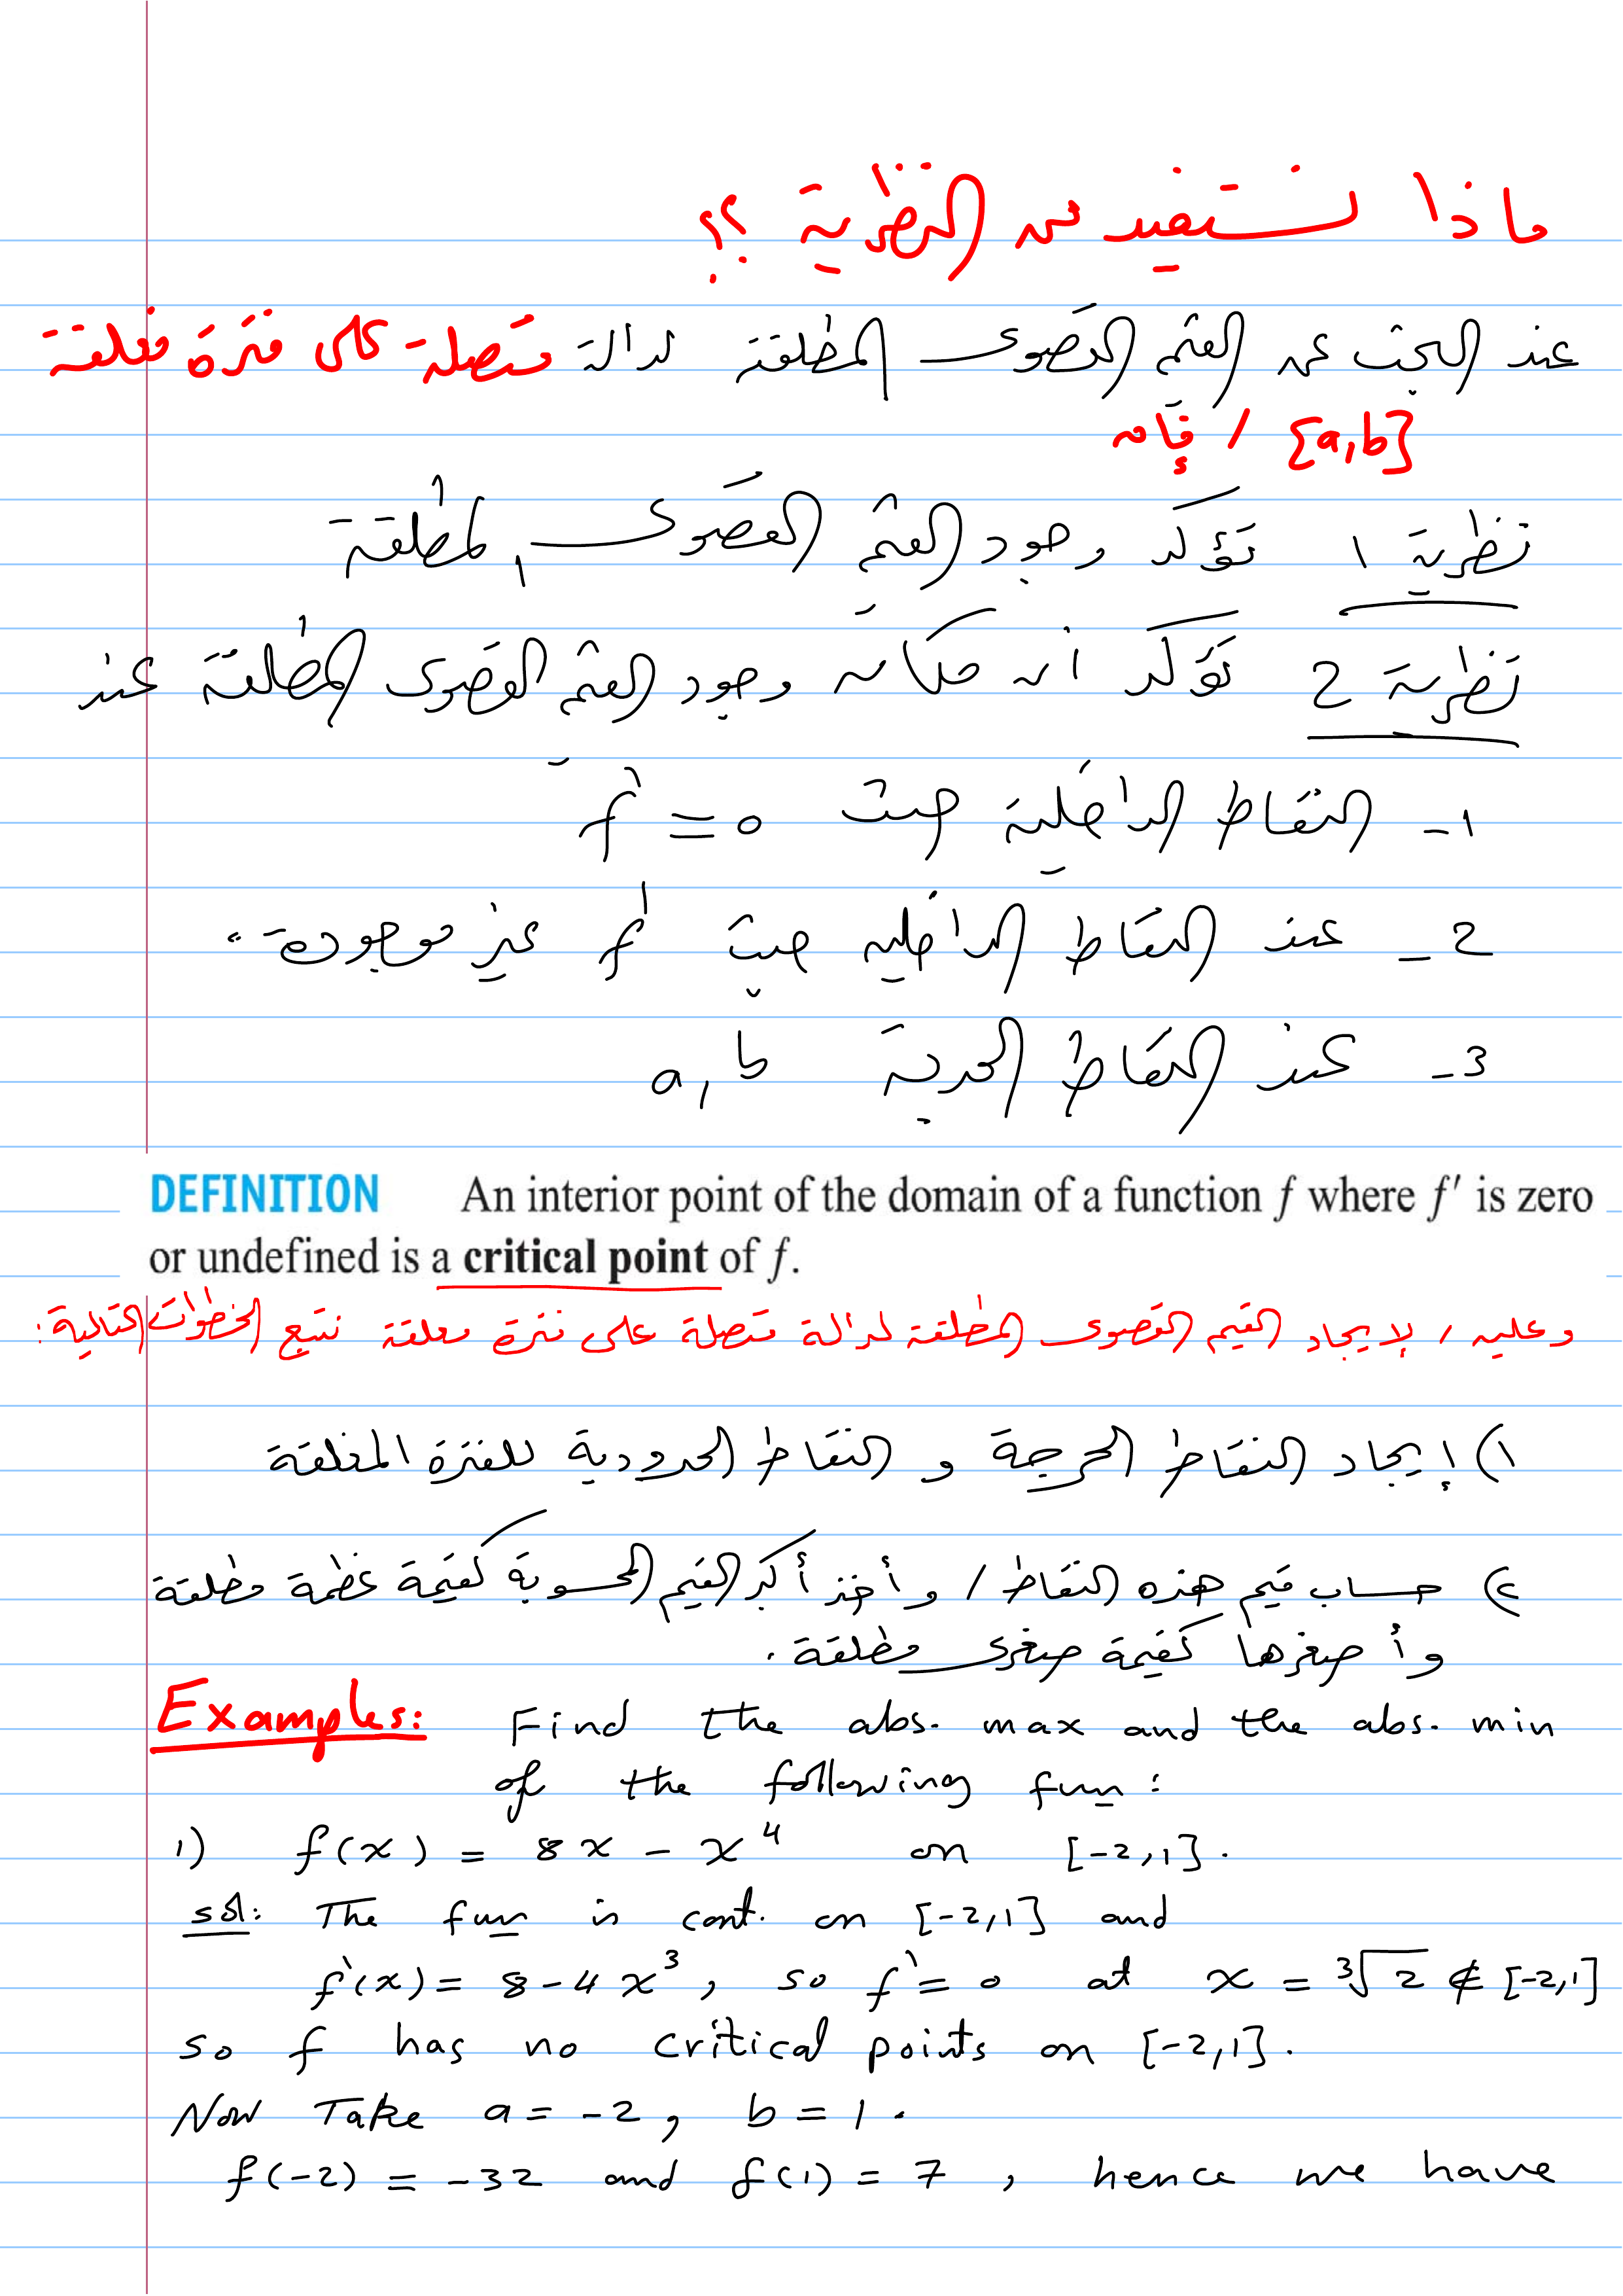 ماذا نستفيد من النظرية ؟؟
عند البحث عن القيم القصوى المطلقة لدالة متصلة على فترة مغلقة
[a,b] / فإن
نظرية ١ تؤكد وجود القيم القصوى المطلقة
نظرية 2 تؤكد أن مكان وجود القيم القصوى المطلقة عند
١- النقاط الداخلية حيث f' = 0
2- عند النقاط الداخلية حيث f' غير موجودة.
3- عند النقاط الحدية a, b
DEFINITION An interior point of the domain of a function f where f′ is zero
or undefined is a critical point of f.
وعليه / لإيجاد القيم القصوى المطلقة لدالة متصلة على فترة مغلقة نتبع الخطوات التالية:
١) إيجاد النقاط الحرجة و النقاط الحدودية للفترة المغلقة
٢) حساب قيم هذه النقاط / وأخذ أكبر القيم المحسوبة كقيمة عظمة مطلقة
وأصغرها كقيمة صغرى مطلقة.
Examples: Find the abs. max and the abs. min
of the following fun:
1) f(x) = 8x - x⁴ on [-2,1].
sol: The fun is cont. on [-2,1] and
f'(x) = 8 - 4x³, so f' = 0 at x = ∛2 ∉ [-2,1]
so f has no critical points on [-2,1].
Now Take a = -2, b = 1.
f(-2) = -32 and f(1) = 7, hence we have